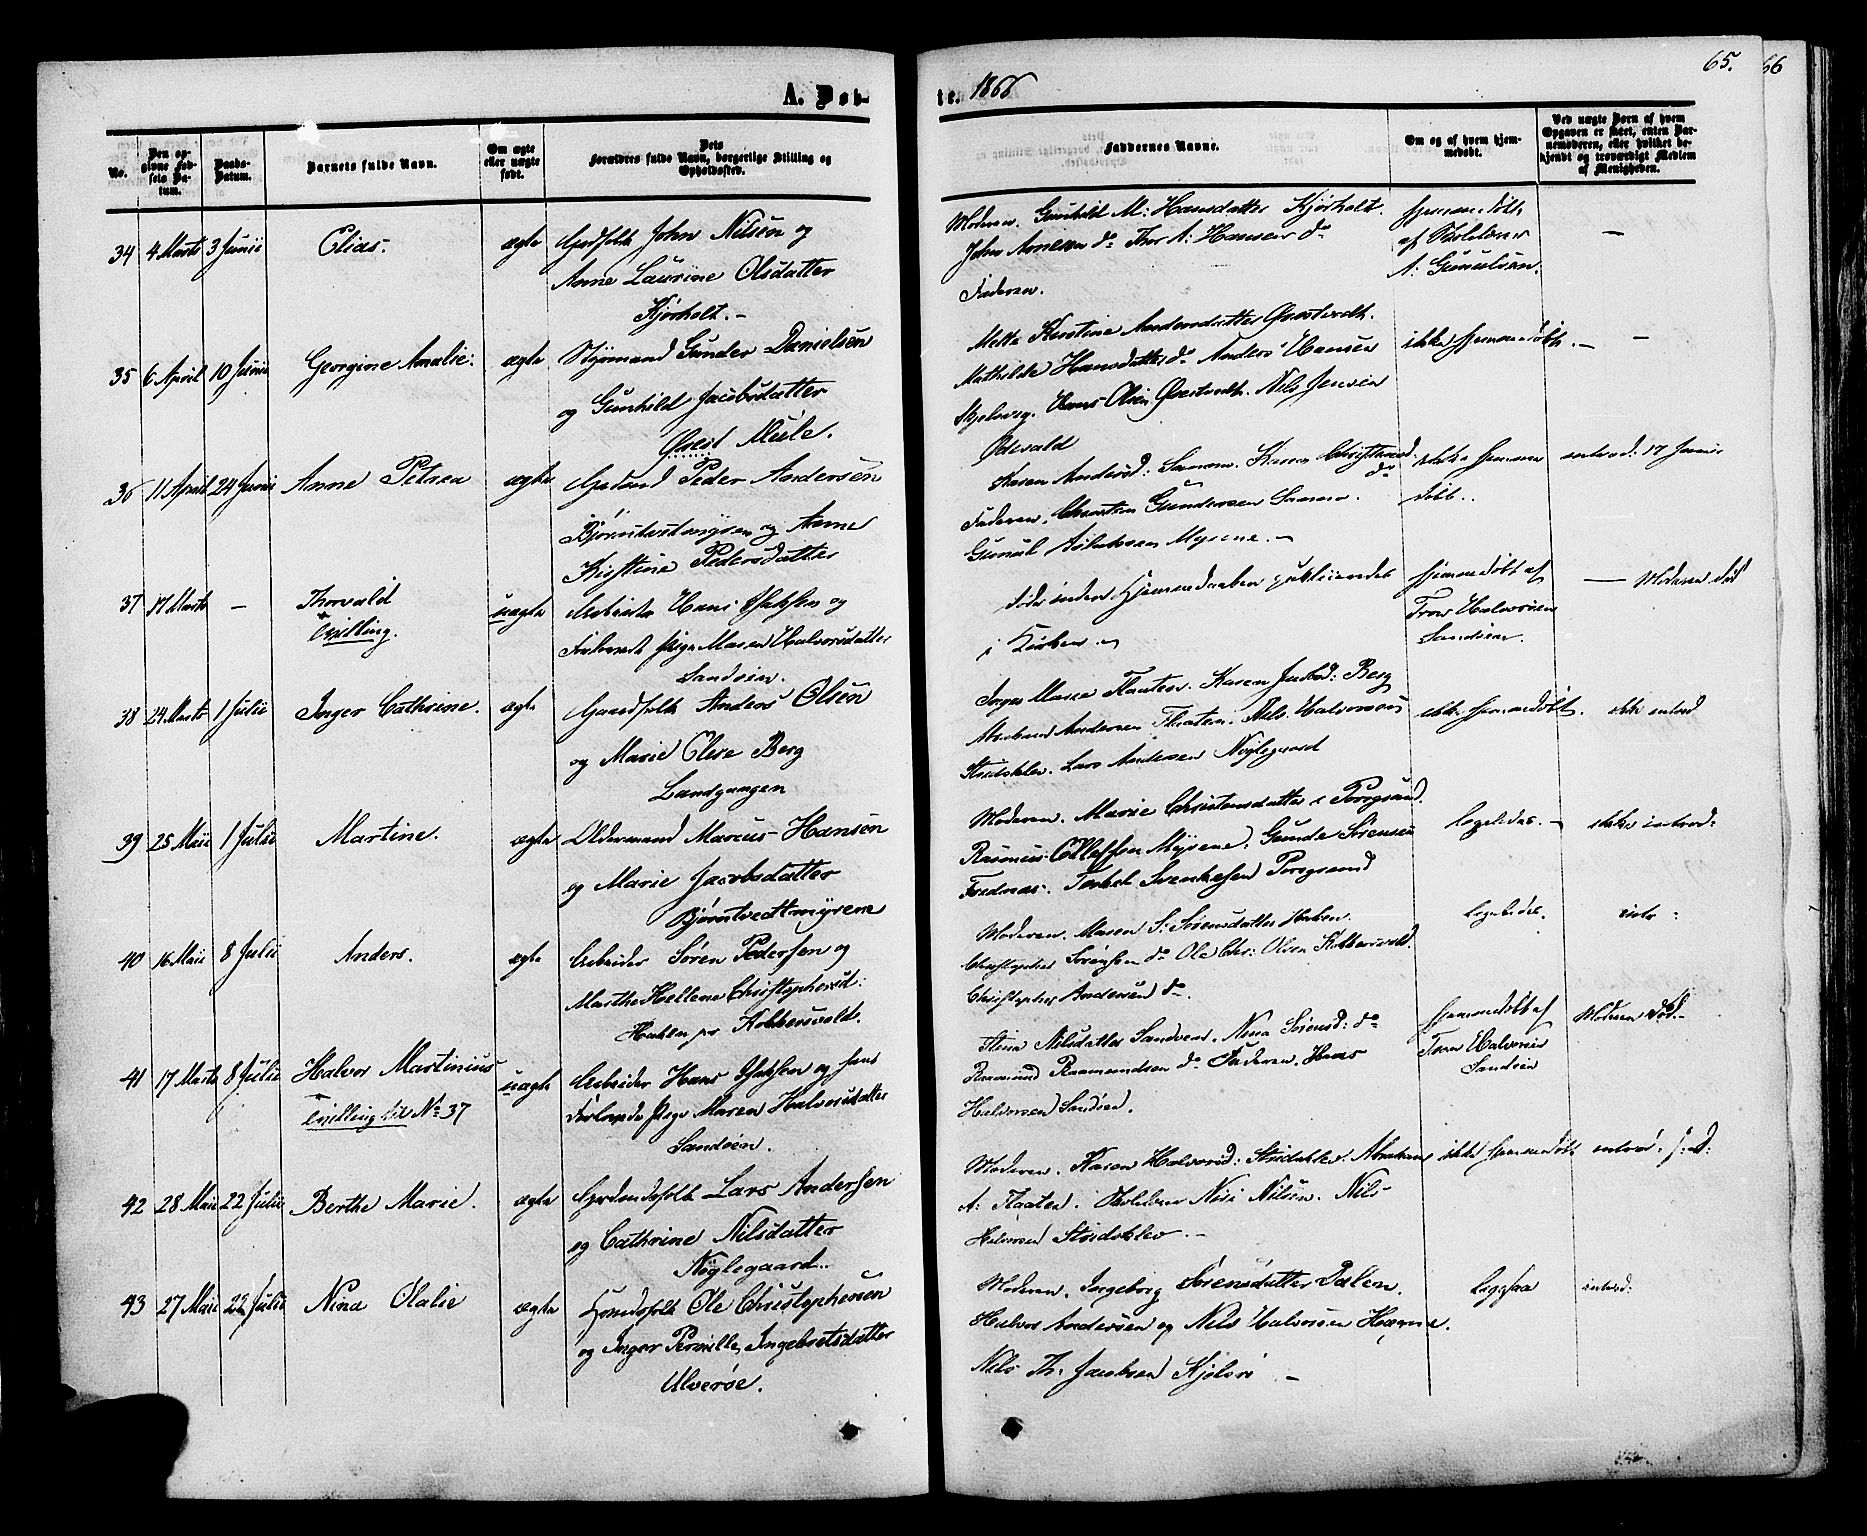 65. 66
A. Døb-
te. 1866
No.
Den opgivne Fødsels Datum.
Daabs-Datum.
Barnets fulde Navn.
Om ægte eller uægte født.
Dets Forældres fulde Navn, borgerlige Stilling og Opholdssted.
Faddernes Navne.
Om og af hvem hjemmedøbt.
Ved uægte Børn af hvem Opgaven er skeet, enten Barnemoderen, eller hvilket bekjendt og troværdigt Medlem af Menigheden.
34 4 Marts 3 Junii Elias. ægte Gdfolk John Nilsen og
Anne Laurine Olsdatter
Kjørholt. -
Moderen. Gunhild M: Hansdatter Kjørholt.
John do Thor A: Hansen do
Faderen.
hjemmedøbt
af Skolelærer
A: Gunulsen.
—
35 6 April 10 Junii Georgine Amalie: ægte Styrmand Gunder Danielsen
og Gunhild Jacobsdatter
Qvest Mule.
Mette Kirstine Andersdatter Qvestvedt.
Mathilde Hansdatter do Anders Hansen
Skjelsvig. Hans Olsen Qvestvedt. Nils Jensen
Ødevald
ikke hjemmedøbt. — —
36 11 April 24 Junii Anne Petrea ægte Gdmd Peder Andersen
Bjørntvedtmyren og Anne
Kirstine Pedersdatter
Karen Andersd: Karen Christensd: do
Faderen. Christen Gundersen
Gunul Myrene. —
ikke hjemme
døbt.
introd: 17 Juni
37 17 Marts — Thorvald
Tvilling.
uægte Arbeider Hans Isaksen og
Pige Maren Halvorsdatter
Sandøen.
døde inden Hjemmedaaben
i Kirken
hjemmedøbt af
Tron Halvorsen
Sandøen.
— Moderen død
38 24 Marts 1 Julii Inger Cathrine. ægte Gaardfolk Anders Olsen
og Marie Elise Berg
Langangen
Inger Marie Flaaten. Karen Jacobd: Berg
Abraham Andersen Flaaten. Nils Halvorsen
Stridsklev. Lars Andersen Nøglegaard
ikke hjemmedøbt. ikke introd
39 25 Maii 1 Julii Martine. ægte Oldermand Marcus Hansen
og Marie Jacobsdatter
Bjørntvedtmyrene
Moderen. Marie Christensdatter Porsgrund.
Rasmus Olleffsen Myrene. Gunder Sørensen
Frednæs. Torkel Svenkesen Porsgrund
Ligeledes. — ikke introd:
40 16 Maii 8 Julii Anders. ægte Arbeider Søren Pedersen og
Marthe Hellene Christophersd:
Haaken pr Kokkersvold.
Moderen. Maren S: Sørensdatter Haaken.
Christopher Sørensen do Ole Chr: Olsen Kokkersvold.
Christopher Andersen do.
ligeledes. intr:
41 17 Marts 8 Julii Halvor Martinius
Tvilling til No 37
uægte Arbeider Hans Isaksen og hans
Forlovede Pige Maren Halvorsdatter
Sandøen.
Stine Nilsdatter Sandøen. Nina Sørensd: do
Rasmund Rasmundsen do Faderen. Hans
Halvorsen Sandøen.
hjemmedøbt af
Tron Halvorsen
Sandøen
Moderen død. -
42 28 Maii 22 Julii Berthe Marie. ægte Gaardsfolk Lars Andersen
og Cathrine Nilsdatter
Nøglegaard..
Moderen. Karen Halvorsd: Stridsklev. Abraham
A: Flaaten. Nils Nilsen. Nils
Halvorsen Stridsklev. -
ikke hjemmedøbt introd:
43 27 Maii 22 Julii Nina Olalie ægte Huusfolk Ole Christophersen
og Inger Pernille Ingebretsdatter
Ulverøe.
Moderen. Ingeborg Sørensdatter Dalen.
Halvor Andersen og Nils Halvorsen Hægne.
Nils Th: Jacobsen Kjelsrø —
Ligesaa introd: